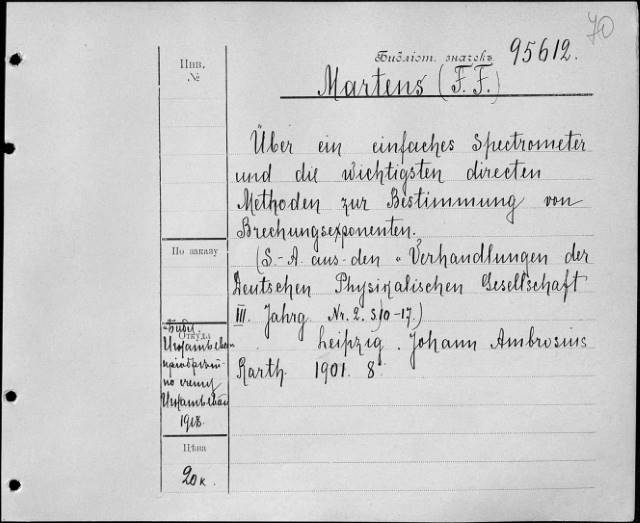 70
Библіот. значекъ 95612.
Инв.
№
Martens (F. F.)
Über ein einfaches Spectrometer
und die wichtigsten directen
Methoden zur Bestimmung von
Brechungsexponenten.
По заказу
(S.-A. aus den „Verhandlungen der
Deutschen Physikalischen Gesellschaft
III. Jahrg. Nr. 2. S. 10-17.)
Откуда
Leipzig. Johann Ambrosius
Barth. 1901. 8°
пріобрѣтен
по счету
Цѣна
20 к.